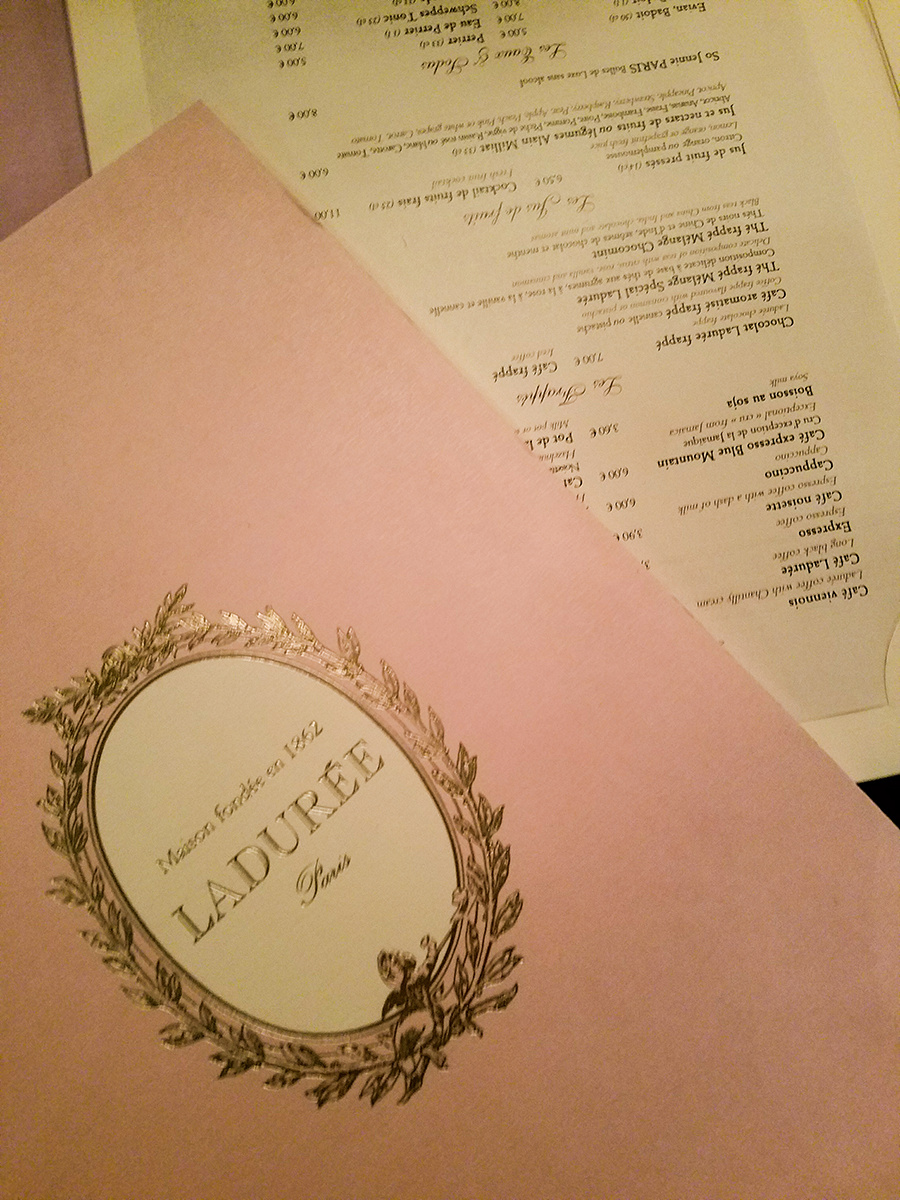 Maison fondée en 1862
LADURÉE
Paris
Café viennois
Ladurée coffee with Chantilly cream
Café Ladurée
Long black coffee
Expresso
Espresso coffee
3,90 €
Café noisette
Espresso coffee with a dash of milk
6,00 €
Cappuccino
Cappuccino
6,00 €
Café expresso Blue Mountain
Cru d'exception de la Jamaïque
Exceptional « cru » from Jamaica
3,60 €
Pot de
Boisson au soja
Soya milk
Les Frappés
7,00 €
Café frappé
Iced coffee
Chocolat Ladurée frappé
Ladurée chocolate frappe
Café frappé aromatisé cannelle ou pistache
Coffee frappe flavoured with cinnamon or pistachio
Thé frappé Mélange Spécial Ladurée
Composition délicate à base de thés aux agrumes, à la rose, à la vanille et cannelle
Delicate composition of teas with citrus, rose, vanilla and cinnamon
Thé frappé Mélange Chocomint
Thés noirs de Chine et d'Inde, arômes de chocolat et menthe
Black teas from China and India, chocolate and mint aromas
Les Jus de fruits
Jus de fruit pressés (14 cl)
6,50 €
Cocktail de fruits frais (25 cl)
11,00
Citron, orange ou pamplemousse
Fresh fruit cocktail
Lemon, orange or grapefruit fresh juice
6,00 €
Jus et nectars de fruits ou légumes Alain Milliat (33 cl)
Abricot, Ananas, Fraise, Framboise, Poire, Pomme, Pêche de vigne, Raisin rosé ou blanc, Carotte, Tomate
Apricot, Pineapple, Strawberry, Raspberry, Pear, Apple, Peach, Pink or white grapes, Carrot, Tomato
So Jennie PARIS Bulles de Luxe sans alcool
8,00 €
Les Eaux & Sodas
Evian, Badoit (50 cl)
5,00 €
Perrier (33 cl)
5,00 €
7,00 €
Eau de Perrier (1 l)
7,00 €
8,00 €
Schweppes Tonic (25 cl)
6,00 €
6,00 €
6,00 €